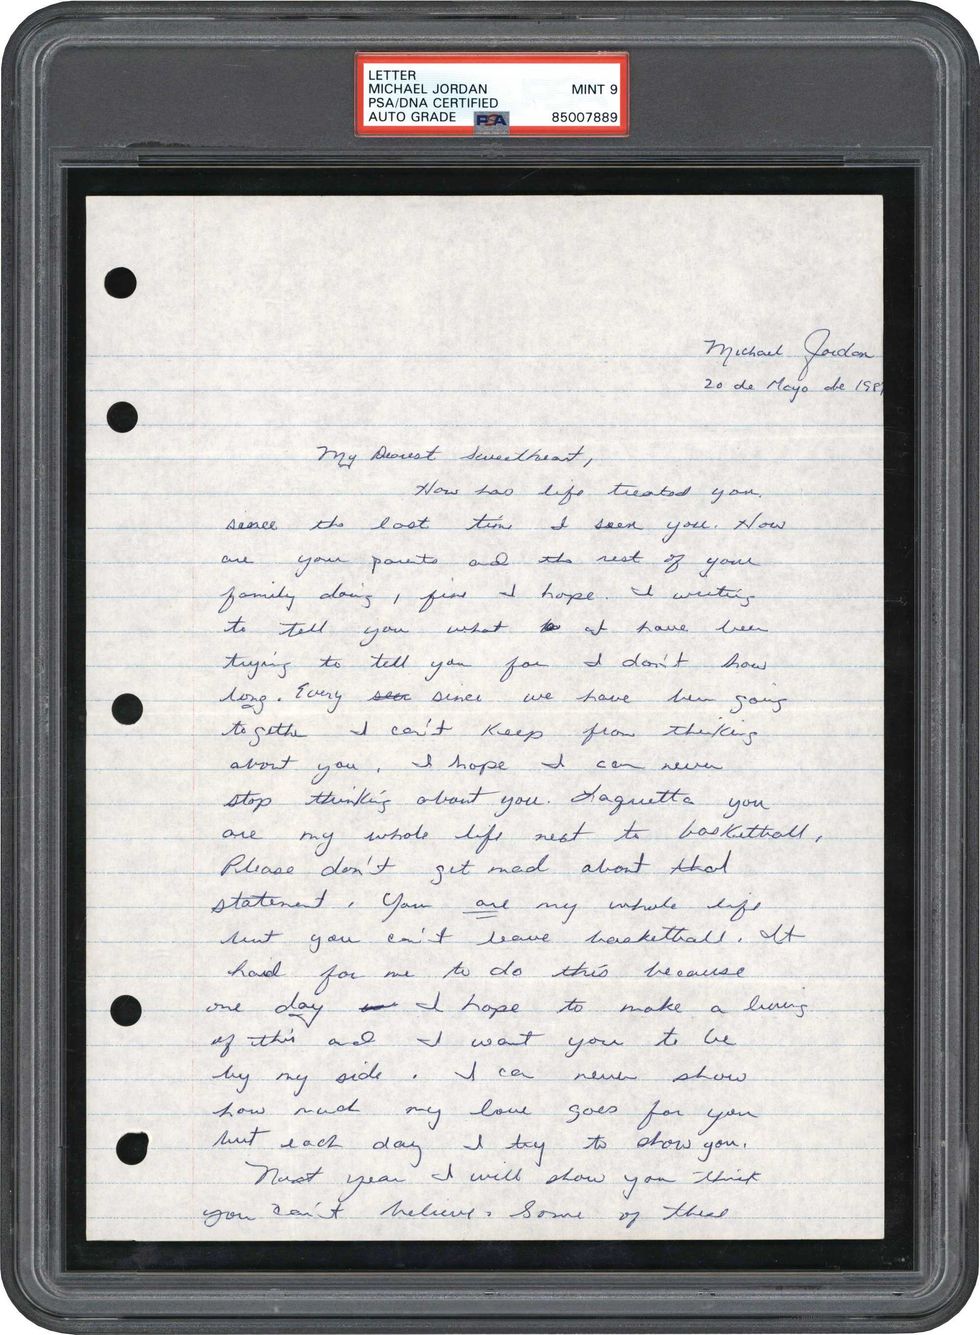 LETTER
MICHAEL JORDAN MINT 9
PSA/DNA CERTIFIED
AUTO GRADE PSA 85007889
Michael Jordan
20 de Mayo de 198
My Dearest Sweetheart,
How has life treated you.
since the last time I seen you. How
are your parents and the rest of your
family doing, fine I hope. I writing
to tell you what I have been
trying to tell you for I don't how
long. Every since we have been going
together I can't keep from thinking
about you. I hope I can never
stop thinking about you. Laquetta you
are my whole life next to basketball,
Please don't get mad about that
statement. You are my whole life
but you can't leave basketball. It
hard for me to do this because
one day I hope to make a living
of this and I want you to be
by my side. I can never show
how much my love goes for you
but each day I try to show you.
Next year I will show you think
you can't believe. Some of these